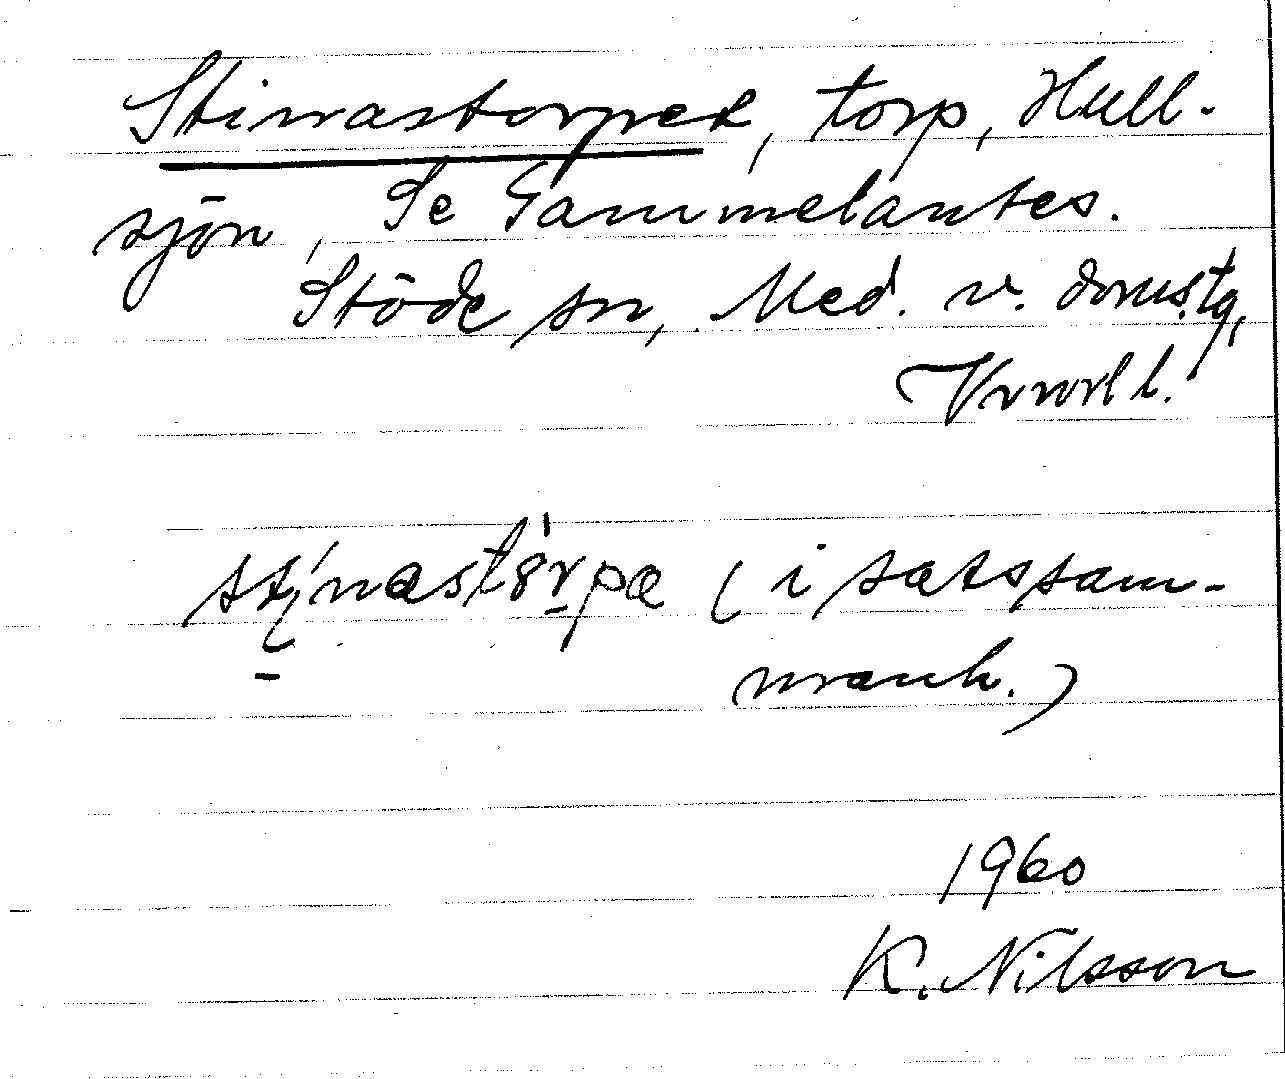 Stinastorpet, torp, Hull-
sjön, Se Gammelantes.
Stöde sn, Med. v. doms.tg,
Vnorl l.
stinastörpa (i satssam-
manh.)
1960
K. Nilsson